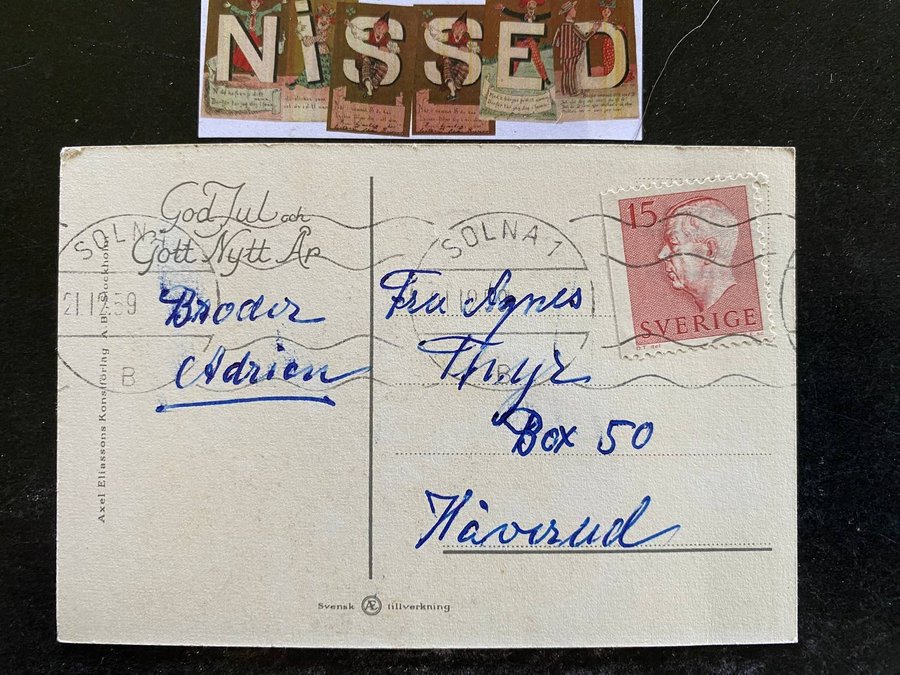 NISSED
God Jul och
Gott Nytt År
SOLNA 1
21.12.59
B
Broder
Adrien
Axel Eliassons Konstförlag A.B. Stockholm
SOLNA 1
B
15
SVERIGE
Fru Agnes
Thyr
Box 50
Håverud
Svensk Æ tillverkning